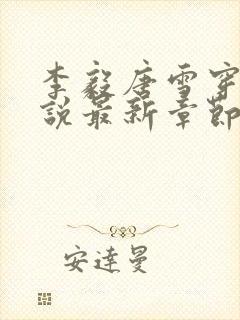 李毅唐雪穿
說最新章節
安達曼